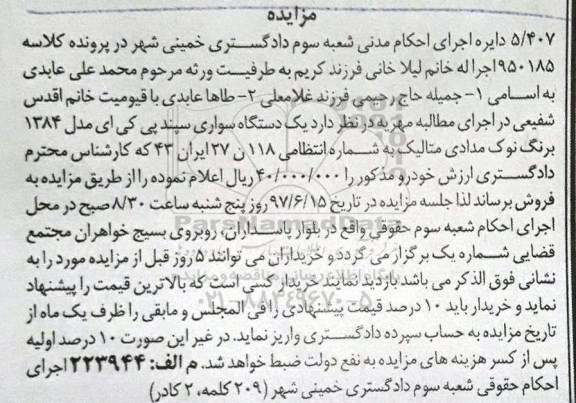 مزایده
۵/۴۰۷ دایره اجرای احکام مدنی شعبه سوم دادگستری خمینی شهر در پرونده کلاسه
۹۵۰۱۸۵ اجرا له خانم لیلا خانی فرزند کریم به طرفیت ورثه مرحوم محمد علی عابدی
به اسامی ۱- جمیله حاج رحیمی فرزند غلامعلی ۲- طاها عابدی با قیومیت خانم اقدس
شفیعی در اجرای مطالبه مهریه در نظر دارد یک دستگاه سواری سپند پی کی ای مدل ۱۳۸۴
برنگ نوک مدادی متالیک به شماره انتظامی ۱۱۸ ن ۲۷ ایران ۴۳ که کارشناس محترم
دادگستری ارزش خودرو مذکور را ۴۰/۰۰۰/۰۰۰ ریال اعلام نموده را از طریق مزایده به
فروش برساند لذا جلسه مزایده در تاریخ ۹۷/۶/۱۵ روز پنج شنبه ساعت ۸/۳۰ صبح در محل
اجرای احکام شعبه سوم حقوقی واقع در بلوار پاسداران، روبروی بسیج خواهران مجتمع
قضایی شماره یک برگزار می گردد و خریداران می توانند ۵ روز قبل از مزایده مورد را به
نشانی فوق الذکر می باشد بازدید نمایند خریدار کسی است که بالاترین قیمت را پیشنهاد
نماید و خریدار باید ۱۰ درصد قیمت پیشنهادی را فی المجلس و مابقی را ظرف یک ماه از
تاریخ مزایده به حساب سپرده دادگستری واریز نماید. در غیر این صورت ۱۰ درصد اولیه
پس از کسر هزینه های مزایده به نفع دولت ضبط خواهد شد. م الف: ۲۲۳۹۴۴ اجرای
احکام حقوقی شعبه سوم دادگستری خمینی شهر (۲۰۹ کلمه، ۲ کادر)
ParsNamadData
۰۲۱-۸۸۳۴۹۶۷۰-۵